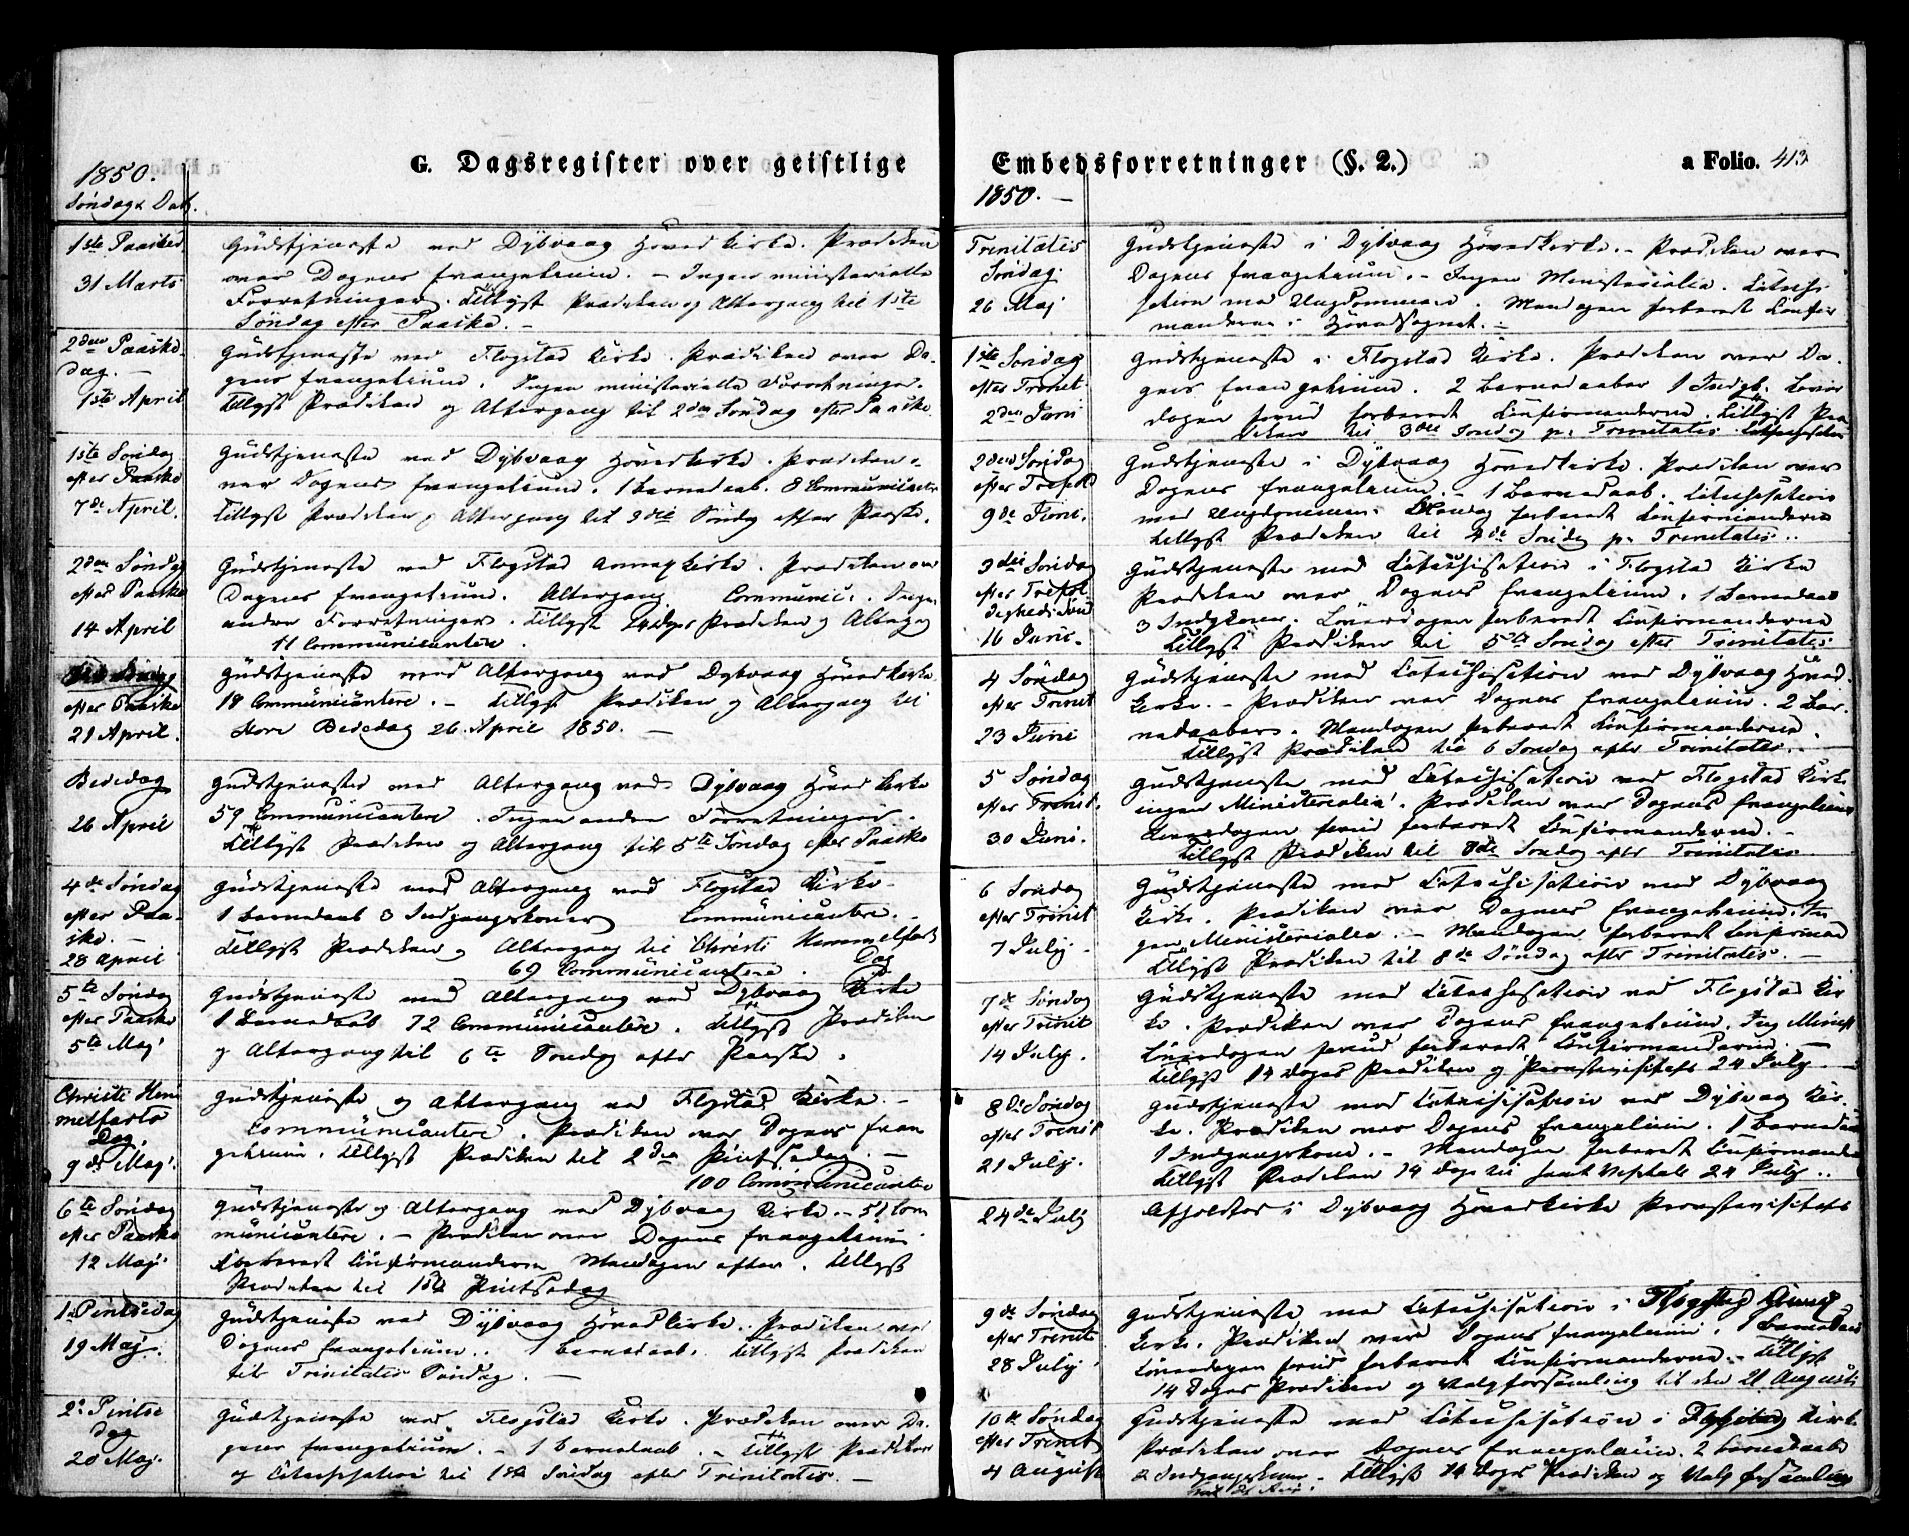 1850.
G. Dagsregister over geistlige
Søndag & Dat.
1ste Paasked.
31 Marts
Gudstjeneste ved Dybvaag Hovedkirke. Prædiken
over Dagens Evangelium. – Ingen ministerielle
Forretninger. Tillyst Prædiken og Altergang til 1ste
Søndag efter Paaske. –
2den Paaske-
dag. –
1ste April
Gudstjeneste ved Flogstad Kirke. Prædiken over Da-
gens Evangelium. Ingen ministerielle Forretninger.
Tillyst Prædiken og Altergang til 2den Søndag efter Paaske.
1ste Søndag
efter Paaske
7de April.
Gudstjeneste ved Dybvaag Hovedkirke. Prædiken o-
ver Dagens Evangelium. 1 Barnedaab. 8 Communicantere
Tillyst Prædiken, Altergang til 3die Søndg efter Paaske.
2den Søndg
efter Paaske
14 April
Gudstjeneste ved Flogstad Annexkirke. Prædiken over
Dagens Evangelium. Altergang. Communic. Ingen
andre Forretninger. Tillyst 14 dgs Prædiken og Alterg
11 Communicantere.
efter Paaske
21 April.
Gudstjeneste med Altergang ved Dybvaag Hovedkirke
18 Communicantere. – Tillyst Prædiken og Altergang til
Store Bededag 26 April 1850. –
Bededag
26 April
Gudstjeneste med Altergang ved Dybvaag Hovedkirke
59 Communicantere. Ingen andre Forretninger.
Tillyst Prædiken og Altergang til 5te Søndag efter Paaske
4de Søndag
efter Paa-
ske. –
28 April
Gudstjeneste med Altergang ved Flogstad Kirke.
1 Barnedaab 3 Indgangskoner Communicantere. –
Tillyst Prædiken og Altergang til Christi Himmelfarts
Dag
69 Communicantere.
5te Søndag
efter Paaske
5te Maj
Gudstjeneste med Altergang ved Dybvaag Kirke
1 Barnedaab 72 Communicantere. Tillyst Prædiken
og Altergang til 6te Søndg efter Paaske.
Christi Him
melfarts
Dag.
9de Maj.
Gudstjeneste og Altergang ved Flogstad Kirke. –
Communicantere. Prædiken over Dagens Evan
gelium. Tillyst Prædiken til 2den Pintsedag. –
100 Communicantere
6te Søndag
efter Paaske
12 Maj.
Gudstjeneste og Altergang ved Dybvaag Kirke. – 51 Com
municantere. – Prædiken over Dagens Evangelium
Forberedt Confirmanderne Mandagen efter. Tillyst
Prædiken til 1ste Pintsedag
1. Pintsedag
19 Maj.
Gudstjeneste ved Dybvaag Hovedkirke. Prædiken over
Dagens Evangelium. 1 Barnedaab. Tillyst Prædiken
til Trinitatis Søndag. –
2. Pintse
dag
20 Maj.
Gudstjeneste ved Flogstad Kirke. Prædiken over Da-
gens Evangelium. – 1 Barnedaab. – Tillyst Prædiken
og Catechisation til 1ste Søndag efter Trinitatis. –
Embedsforretninger (§. 2.)
a Folio. 413
1850. –
Trinitatis
Søndag.
26 Maj
Gudstjeneste i Dybvaag Hovedkirke. – Prædiken over
Dagens Evangelium. – Ingen Ministerialia. Catechi-
sation med Ungdommen. Mandagen forberedt Confir
manderne i Hovedsognet. –
1ste Søndag
efter Trinit
2den Juni
Gudstjeneste i Flogstad Kirke. Prædiken over Da-
gens Evangelium. 2 Barnedaaber 1 Indgk. Løver
dagen forud forberedt Confirmanderne. Tillyst Præ
diken til 3die Søndag p. Trinitatis
2den Søndag
9de Juni.
Gudstjeneste i Dybvaag Hovedkirke. Prædiken over
Dagens Evangelium. – 1 Barnedaab. Catechisation
med Ungdommen. Mandag forberedt Confirmanderne
Tillyst Prædiken til 4de Søndg p. Trinitatis..
3die Søndag
efter Trefol
dighedssønd
16 Juni.
Gudstjeneste med Catechisation i Flogstad Kirke
Prædiken over Dagens Evangelium. 1 Barnedaab
3 Indgkoner. Løverdagen forberedt Confirmanderne
Tillyst Prædiken til 5te Søndag efter Trinitatis
4 Søndag
efter Trinit
23 Juni
Gudstjeneste med Catechisation ved Dybvaag Hoved-
kirke. – Prædiken over Dagens Evangelium. 2 Bar-
nedaaber. Mandagen forberedt Confirmanderne.
Tillyst Prædiken til 6 Søndag efter Trinitatis. –
5 Søndag
efter Trinit.
30 Juni.
Gudstjeneste med Catechisation ved Flogstad Kirke
ingen Ministerialia. Prædiken over Dagens Evangelium
Løverdagen forud forberedt Confirmanderne. –
Tillyst Prædiken til Søndag efter Trinitatis
6 Søndag
efter Trinit
7 July.
Gudstjeneste med Catechisation ved Dybvaag
Kirke. Prædiken over Dagens Evangelium. In
gen Ministerialia. – Mandagen forberedt Confirmand
Tillyst Prædiken til 8de Søndag efter Trinitatis. –
7de Søndag
efter Trinit
14 July.
Gudstjeneste med Catechisation ved Flogstad Kir
ke. Prædiken over Dagens Evangelium. Ing Minist
Løverdagen forud forberedt Confirmanderne. –
Tillyst 14 dages Prædiken og Provstevisitats 24 July. –
8de Søndag
efter Trinit
21 July.
Gudstjeneste med Catechisation ved Dybvaag Kir-
ke. Prædiken over Dagens Evangelium. 1 Barnedaab
1 Indgangskone. – Mandagen forberedt Confirmande
Tillyst Prædiken 14 dage til samt Visitats 24 July..
24de July
Afholdtes i Dybvaag Hovedkirke Provstevisitats
9de Søndag
efter Trinit
28 July
Gudstjeneste med Catechisation i Flogstad Annex
Kirke. Prædiken over Dagens Evangelium. 1 Barnedaab
Løverdagen forud forberedt Confirmanderne – Tillyst
14 Dages Prædiken og Valgforsamling til den 21 Augusti
10de Søndag
efter Trinit
4 August
Gudstjeneste med Catechisation i Kirke
Prædiken over Dagens Evangelium. 2 Barnedaabe
2 Indgangskoner – Tillyst 14 dages Prædiken og Valg forsamling